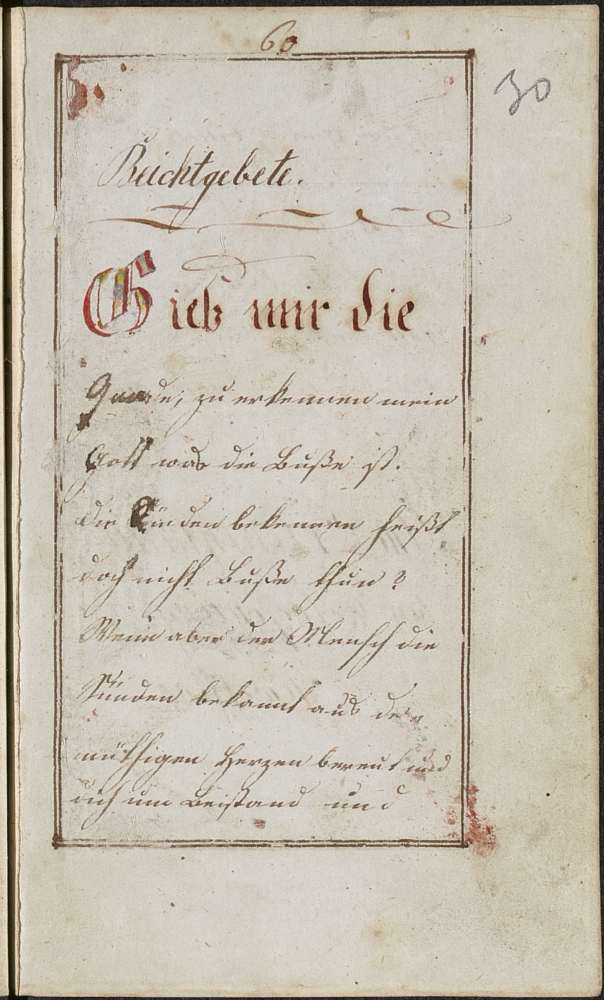 60
30
Beichtgebete.
Gieb mir die
Gnade, zu erkennen mein
Gott was die Buße ist.
Die Sünden bekennen heißt
doch nicht Buße thun?
Wenn aber der Mensch die
Sünden bekannt aus de
müthigen Herzen bereut und
dich um Beistand und